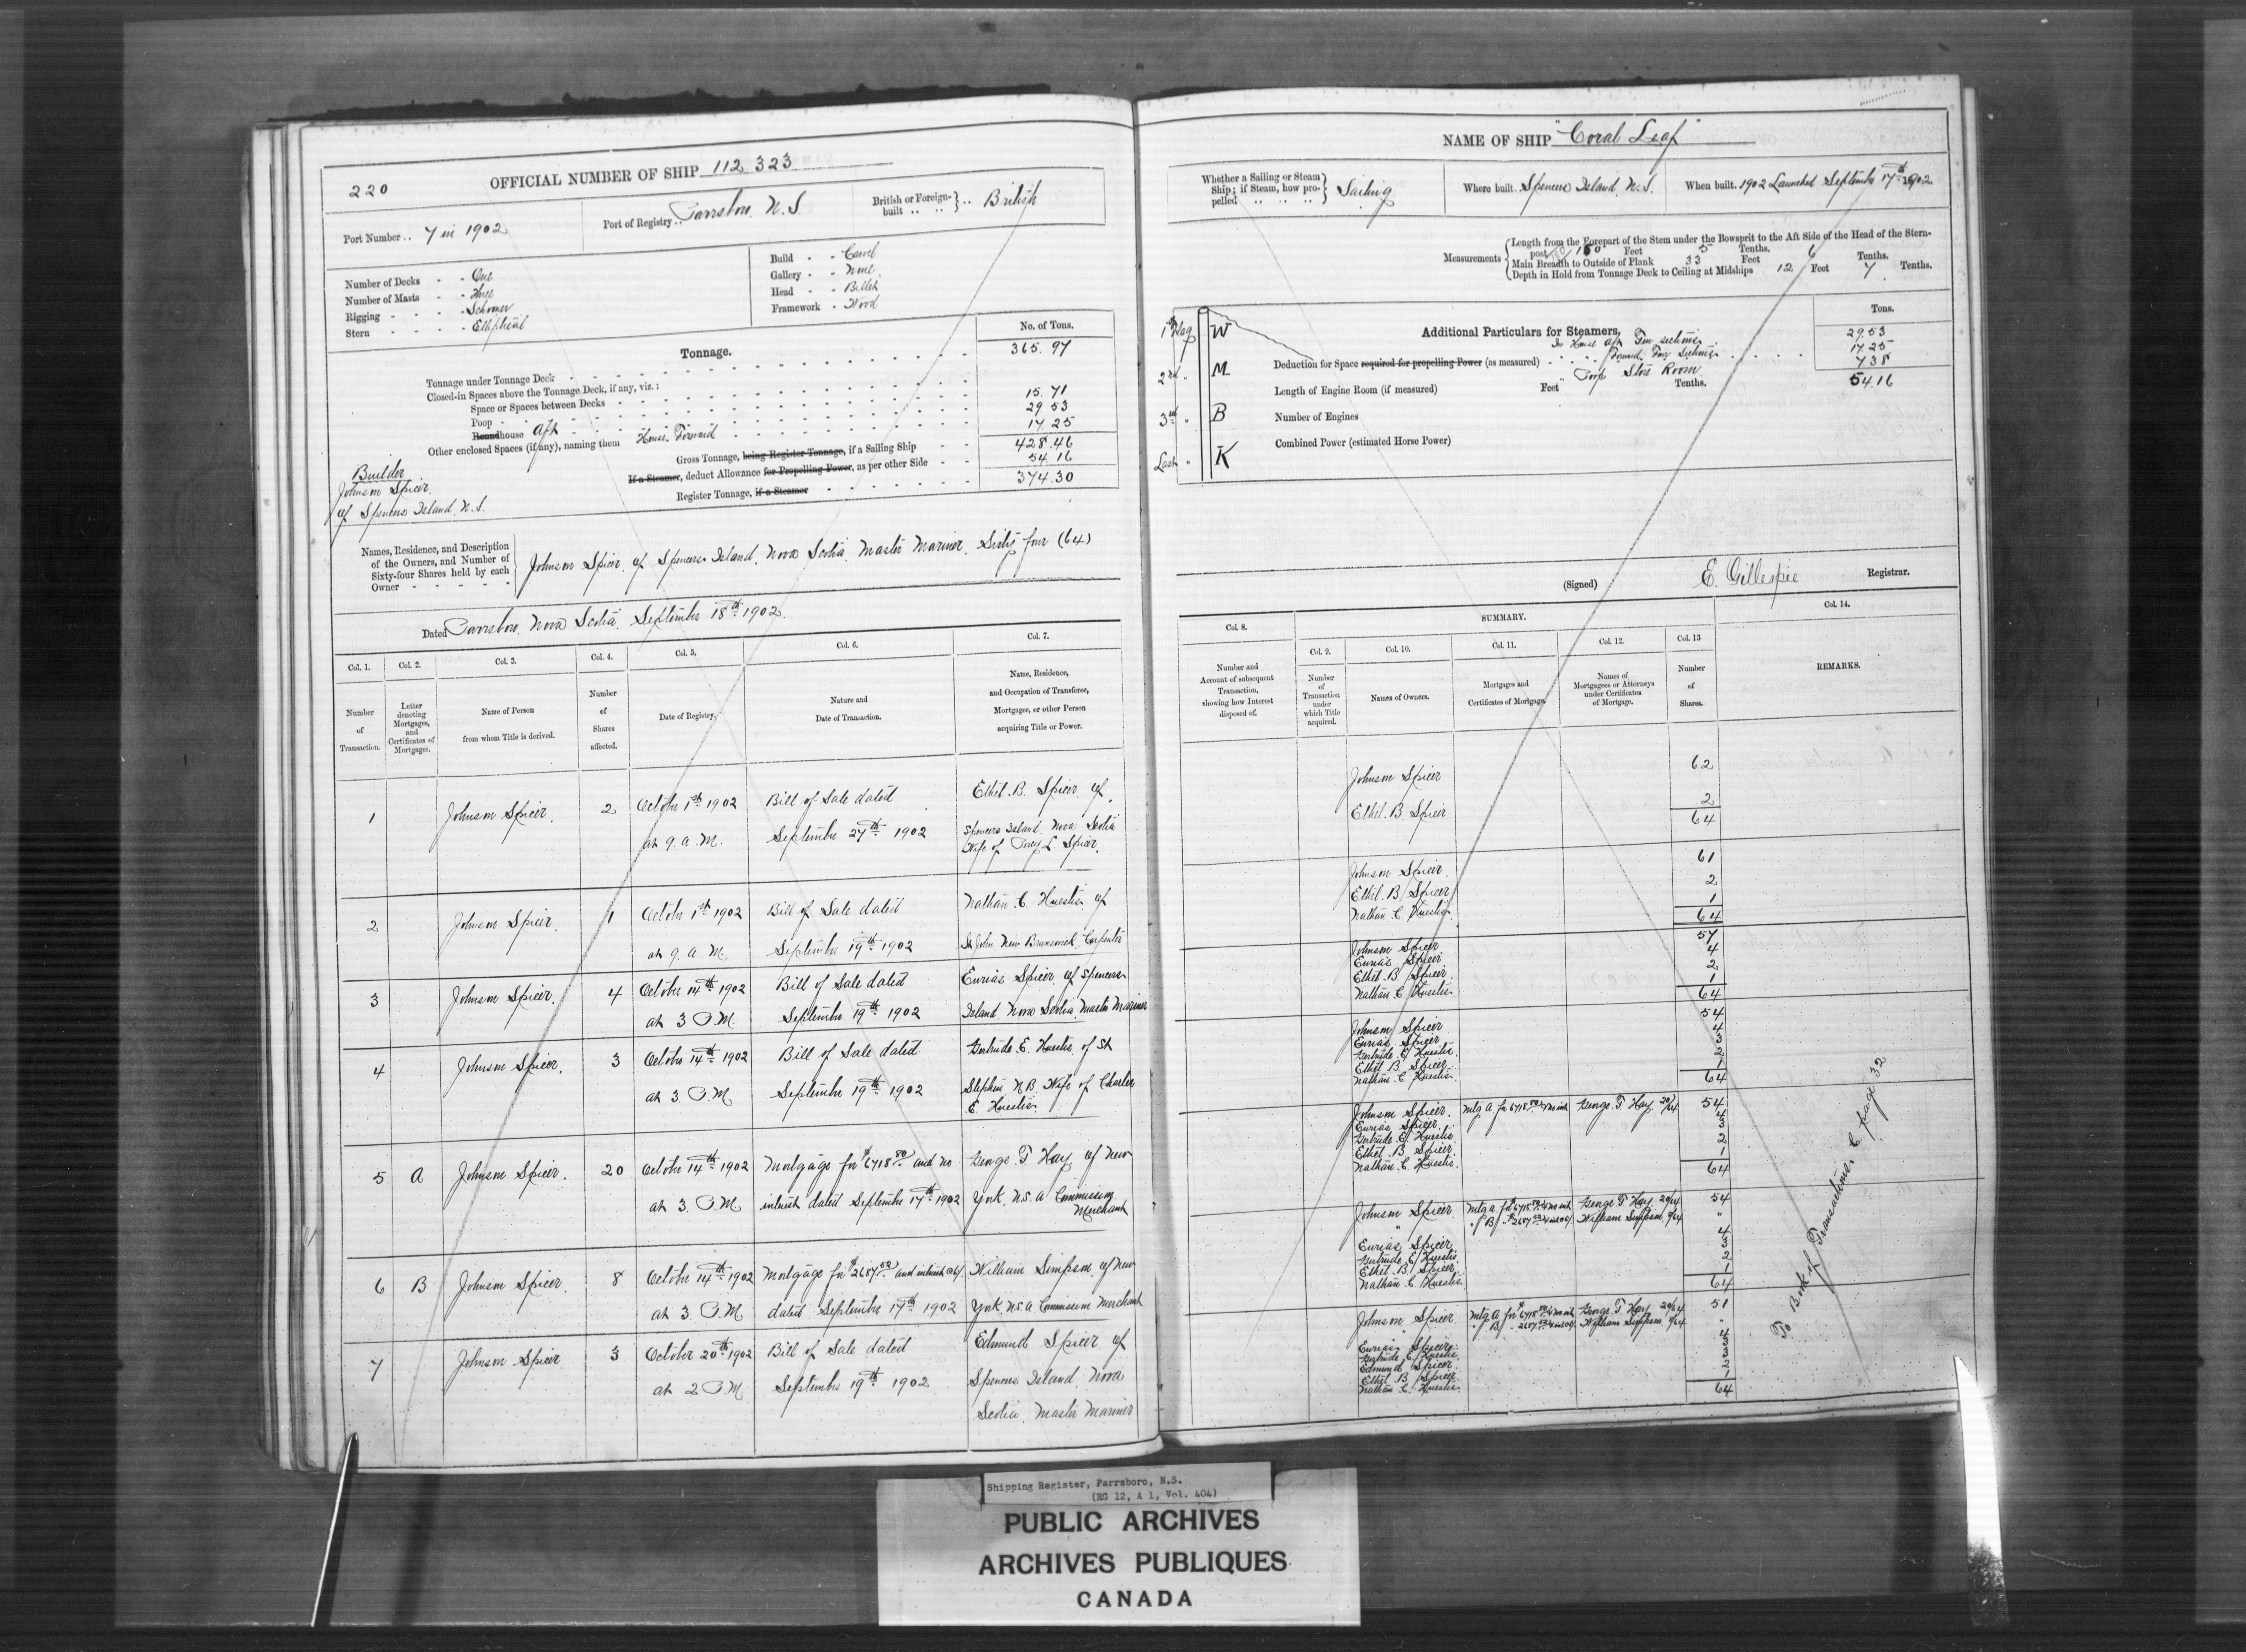 220
OFFICIAL NUMBER OF SHIP 112 323
Port Number .. 7 in 1902
Port of Registry .. Parrsboro. N.S.
British or Foreign-built .. British
Number of Decks - - One
Number of Masts - - Three
Rigging - - - - Schooner
Stern - - - - Elliptical
Build - - Carvel
Gallery - - None
Head - - Billet
Framework - Wood
Tonnage.
No. of Tons.
Tonnage under Tonnage Deck 365.97
Closed-in Spaces above the Tonnage Deck, if any, viz.:
Space or Spaces between Decks
Poop 15.71
Roundhouse Aft 29.53
Other enclosed Spaces (if any), naming them House Forward 17.25
Gross Tonnage, being Register Tonnage, if a Sailing Ship 428.46
If a Steamer, deduct Allowance for Propelling Power, as per other Side 54.16
Register Tonnage, if a Steamer 374.30
Builder
Johnson Spicer
of Spencers Island. N.S.
Names, Residence, and Description of the Owners, and Number of Sixty-four Shares held by each Owner
Johnson Spicer of Spencers Island, Nova Scotia, Master Mariner. Sixty four (64)
Dated Parrsboro, Nova Scotia, September 18th 1902
Col. 1. Col. 2. Col. 3. Col. 4. Col. 5. Col. 6. Col. 7.
Number of Transaction.
Letter denoting Mortgages, and Certificates of Mortgages.
Name of Person from whom Title is derived.
Number of Shares affected.
Date of Registry.
Nature and Date of Transaction.
Name, Residence, and Occupation of Transferee, Mortgagee, or other Person acquiring Title or Power.
1 Johnson Spicer. 2 October 1st 1902 Bill of Sale dated Ethel. B. Spicer of
at 9. a. M. September 27th 1902 Spencers Island. Nova Scotia
Wife of Percy L Spicer.
2 Johnson Spicer. 1 October 1st 1902 Bill of Sale dated Nathan. C. Huestis of
at 9. a. M. September 19th 1902 St John New Brunswick Carpenter
3 Johnson Spicer. 4 October 14th 1902 Bill of Sale dated Eurias Spicer of Spencers
at 3. P.M. September 19th 1902 Island. Nova Scotia. Master Mariner
4 Johnson Spicer. 3 October 14th 1902 Bill of Sale dated Gertrude E. Huestis of St
at 3. P.M September 19th 1902 Stephen N.B. Wife of Charles
E. Huestis
5 A Johnson Spicer. 20 October 14th 1902 Mortgage for $6718.80 and no George T Hay of New
at 3. P.M interest dated September 17th 1902 York. U.S.A Commission
Merchant
6 B Johnson Spicer. 8 October 14th 1902 Mortgage for $2687.52 and interest William Simpson of New
at 3. P.M dated September 17th 1902 York U.S.A Commission Merchant
7 Johnson Spicer 3 October 20th 1902 Bill of Sale dated Edmund Spicer of
at 2 P.M September 19th 1902 Spencers Island Nova
Scotia. Master Mariner
NAME OF SHIP "Coral Leaf"
Whether a Sailing or Steam Ship; if Steam, how propelled Sailing
Where built. Spencers Island. N.S.
When built. 1902 Launched September 17th 1902
Measurements
Length from the Forepart of the Stem under the Bowsprit to the Aft Side of the Head of the Stern-
post 150 Feet 5 Tenths.
Main Breadth to Outside of Plank 33 Feet 6 Tenths.
Depth in Hold from Tonnage Deck to Ceiling at Midships 12 Feet 7 Tenths.
1st Flag W
2nd " M
3rd " B
Last " K
Additional Particulars for Steamers.
Tons.
In House Aft 29.53
Forward 17.25
Deduction for Space required for propelling Power (as measured)
Poop Store Room 7.38
54.16
Length of Engine Room (if measured) Feet Tenths.
Number of Engines
Combined Power (estimated Horse Power)
(Signed) E. Gillespie Registrar.
Col. 8.
SUMMARY.
Col. 14.
Col. 9. Col. 10. Col. 11. Col. 12. Col. 13
Number and Account of subsequent Transaction, showing how Interest disposed of.
Number of Transaction under which Title acquired.
Names of Owners.
Mortgages and Certificates of Mortgage.
Names of Mortgagees or Attorneys under Certificates of Mortgage.
Number of Shares.
REMARKS.
Johnson Spicer 62
Ethel. B. Spicer 2
64
Johnson Spicer. 61
Ethel. B. Spicer 2
Nathan. C. Huestis. 1
64
Johnson Spicer 57
Eurias Spicer 4
Ethel. B. Spicer. 2
Nathan C Huestis. 1
64
Johnson Spicer 54
Eurias Spicer 4
Gertrude E Huestis. 3
Ethel B. Spicer 2
Nathan. C. Huestis. 1
64
Johnson Spicer. Mtg A for 6718.80 & no int George. T Hay 20/64 54
Eurias Spicer. 4
Gertrude E. Huestis. 3
Ethel. B Spicer 2
Nathan. C Huestis. 1
64
Johnson Spicer Mtg A. for $6718.80 & no int George T Hay 20/64 54
" " B " $2687.52 & int William Simpson 8/64 "
Eurias Spicer 4
Gertrude E Huestis 3
Ethel. B. Spicer 2
Nathan C Huestis 1
64
Johnson Spicer Mtg A for $6718.80 & no int George. T. Hay 20/64 51
" " B " 2687.52 & int William Simpson 8/64 "
Eurias Spicer. 4
Gertrude E Huestis. 3
Edmund Spicer. 3
Ethel B. Spicer 2
Nathan C. Huestis. 1
64
To Book of Transactions C. page 32
Shipping Register, Parrsboro, N.S.
(RG 12, A 1, Vol. 404)
PUBLIC ARCHIVES
ARCHIVES PUBLIQUES
CANADA